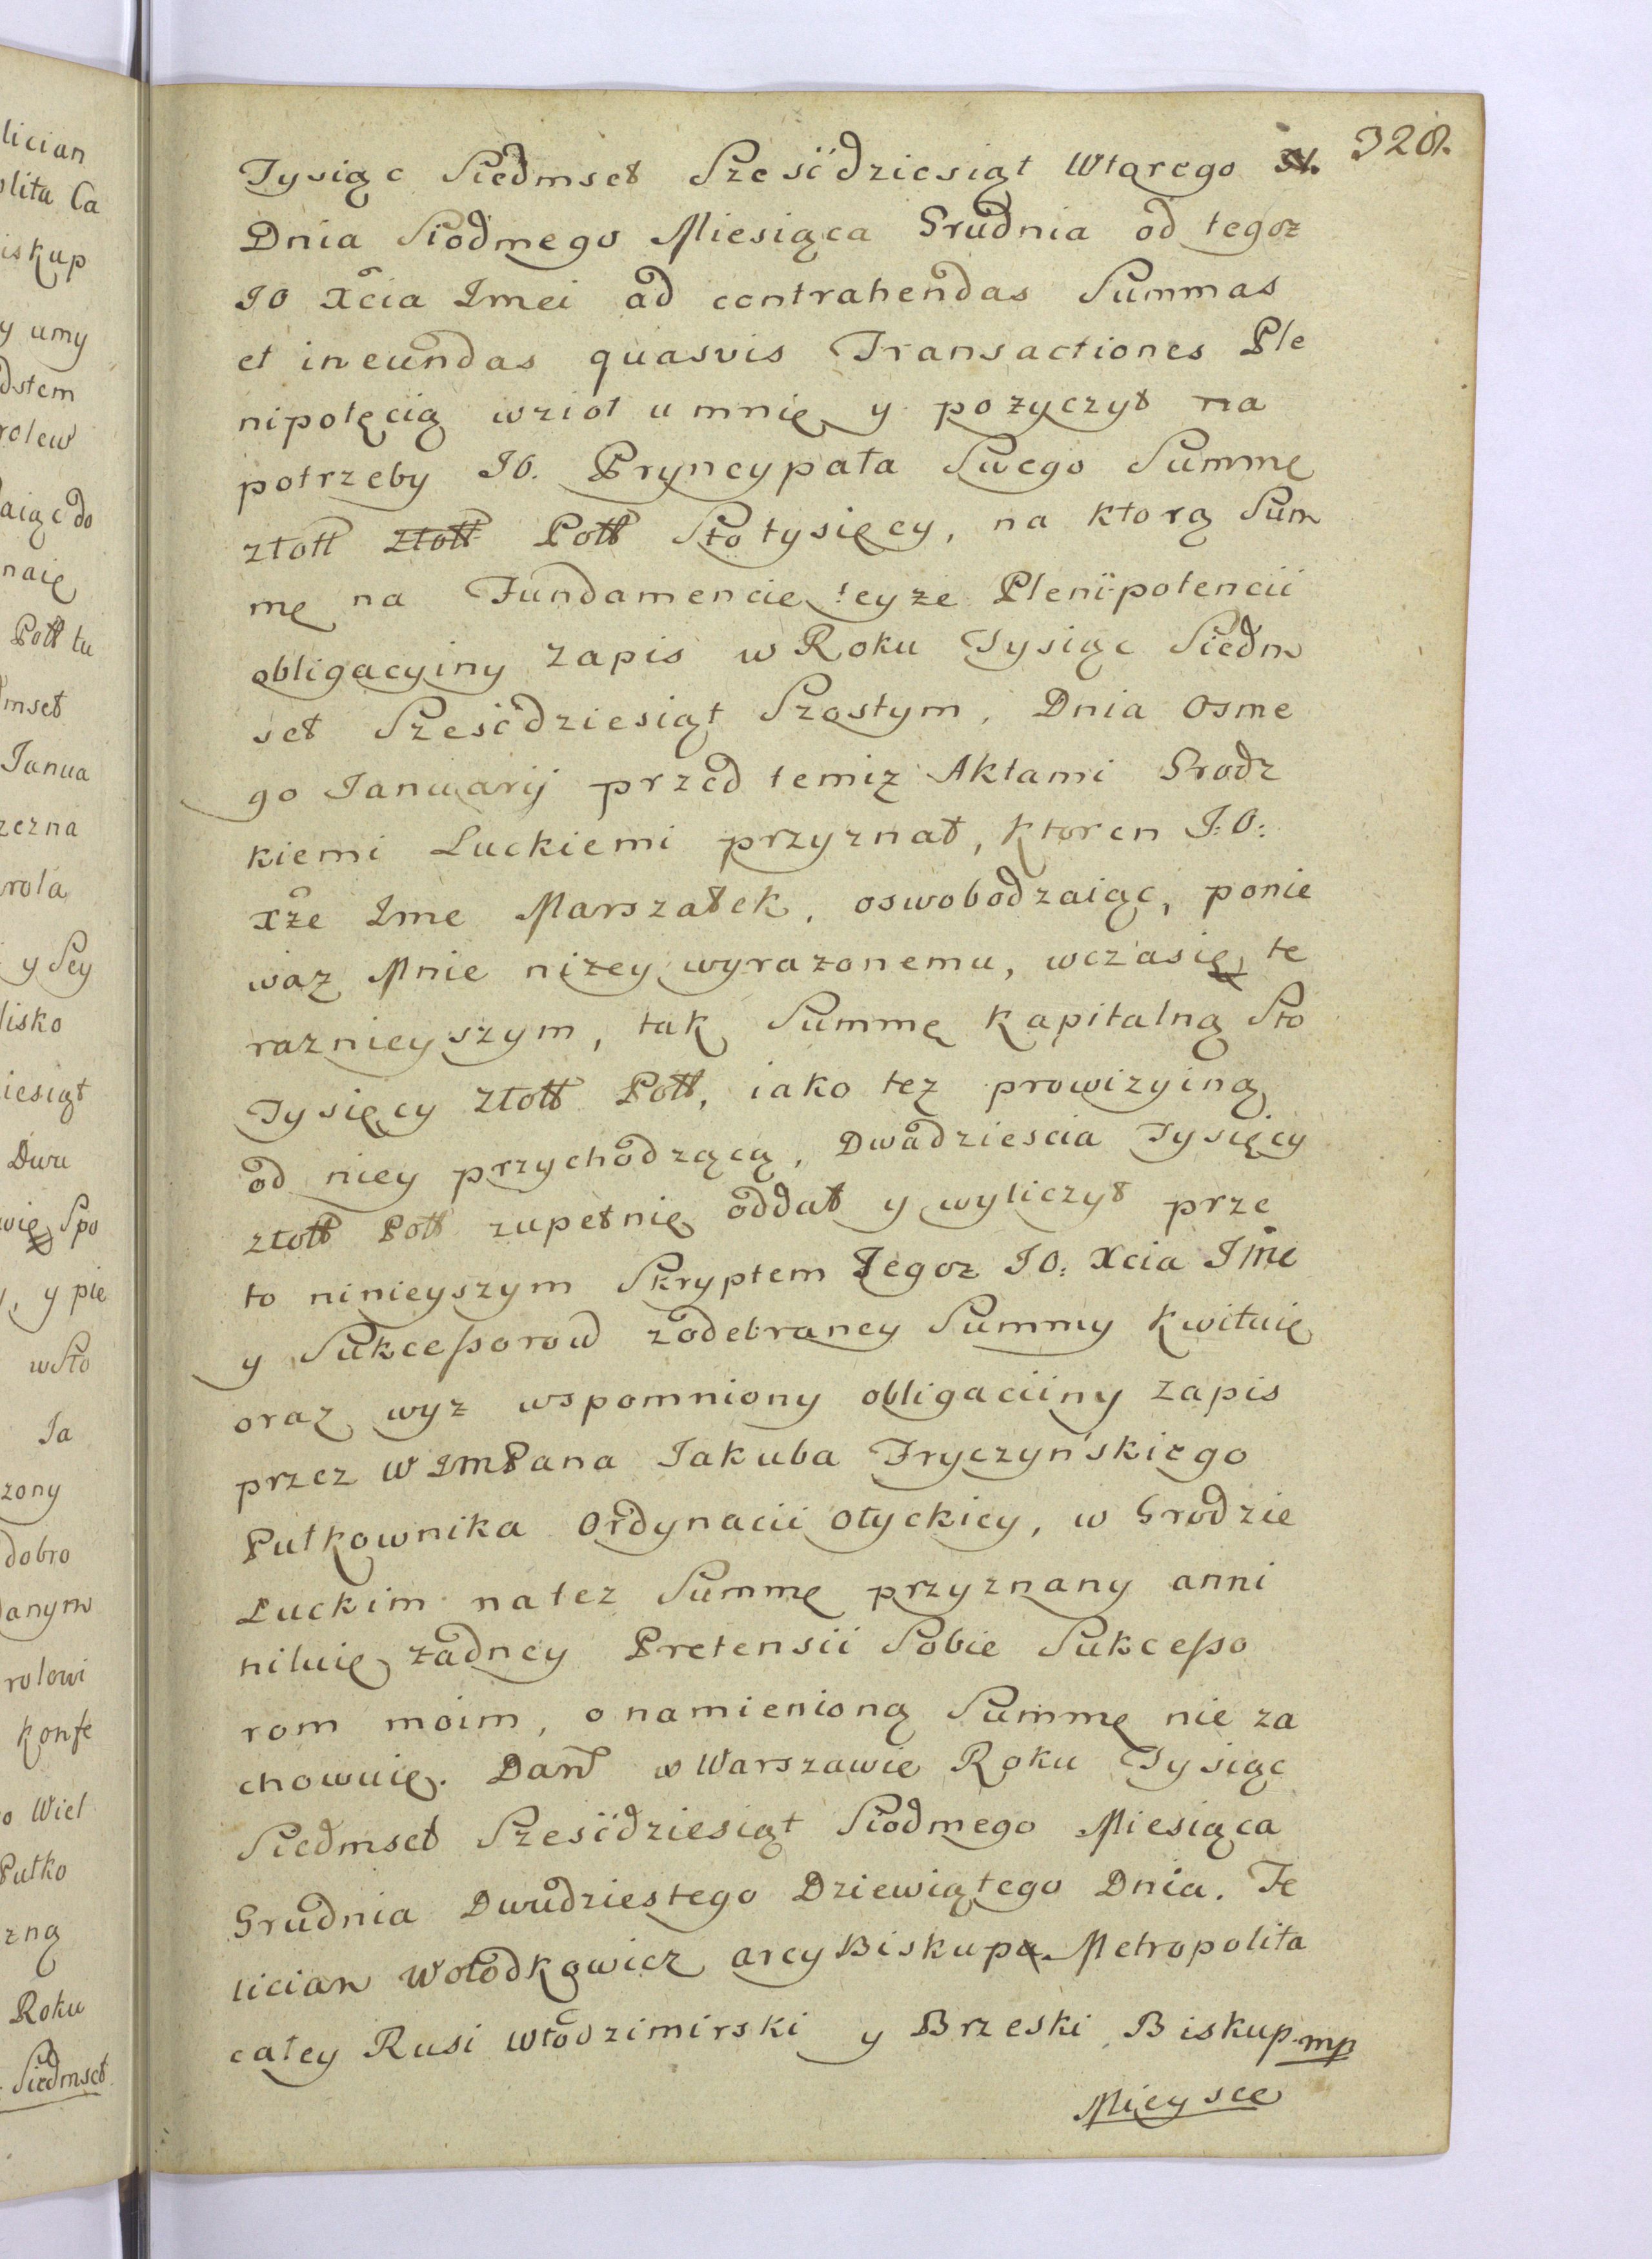 328.
Tysiąc Siedmset Sześćdziesiąt Wtorego
Dnia Siodmego Miesiąca Grudnia od tegoz
JO Xcia Imci ad contrahendas Summas
et ineundas quasvis Transactiones Ple
nipotęcią wzioł u mnie y pozyczył na
potrzeby JO. Pryncypała Swego Summę
złott złott Poll Sto tysięcy, na ktorą Sum
mę na Fundamencie teyze Plenipotencii
obligacyiny zapis w Roku Tysiąc Siedm
set Sześćdziesiąt Szostym, Dnia Osme
go Januarij przed temiz Aktami Grodz
kiemi Luckiemi przyznał, ktoren J:O:
Xże Ime Marszałek, oswobodzaiąc, ponie
waz Mnie nizey wyrazonemu, wczasie te
raznieyszym, tak Summę kapitalną Sto
Tysięcy Złott Poll, iako tez prowizyiną
od niey przychodzącą, Dwadziescia Tysięcy
złott Poll zupełnie oddał y wyliczył prze
to ninieyszym Skryptem Tegoz JO: Xcia Ime
y Sukcessorow zodebraney Summy kwituię
oraz wyz wspomniony obligaciiny zapis
przez W ImPana Jakuba Fryczyńskiego
Pułkownika Ordynacii Ołyckiey, w Grodzie
Luckim natez Summę przyznany anni
niluię, zadney Pretensii Sobie Sukcesso
rom moim, o namienioną Summę nie za
chowuię. Dan w Warszawie Roku Tysiąc
Siedmset Sześćdziesiąt Siodmego Miesiąca
Grudnia Dwudziestego Dziewiątego Dnia. Fe
lician Wołodkowicz arcy Biskup Metropolita
całey Rusi Włodzimirski y Brzeski Biskup mp
Mieysce